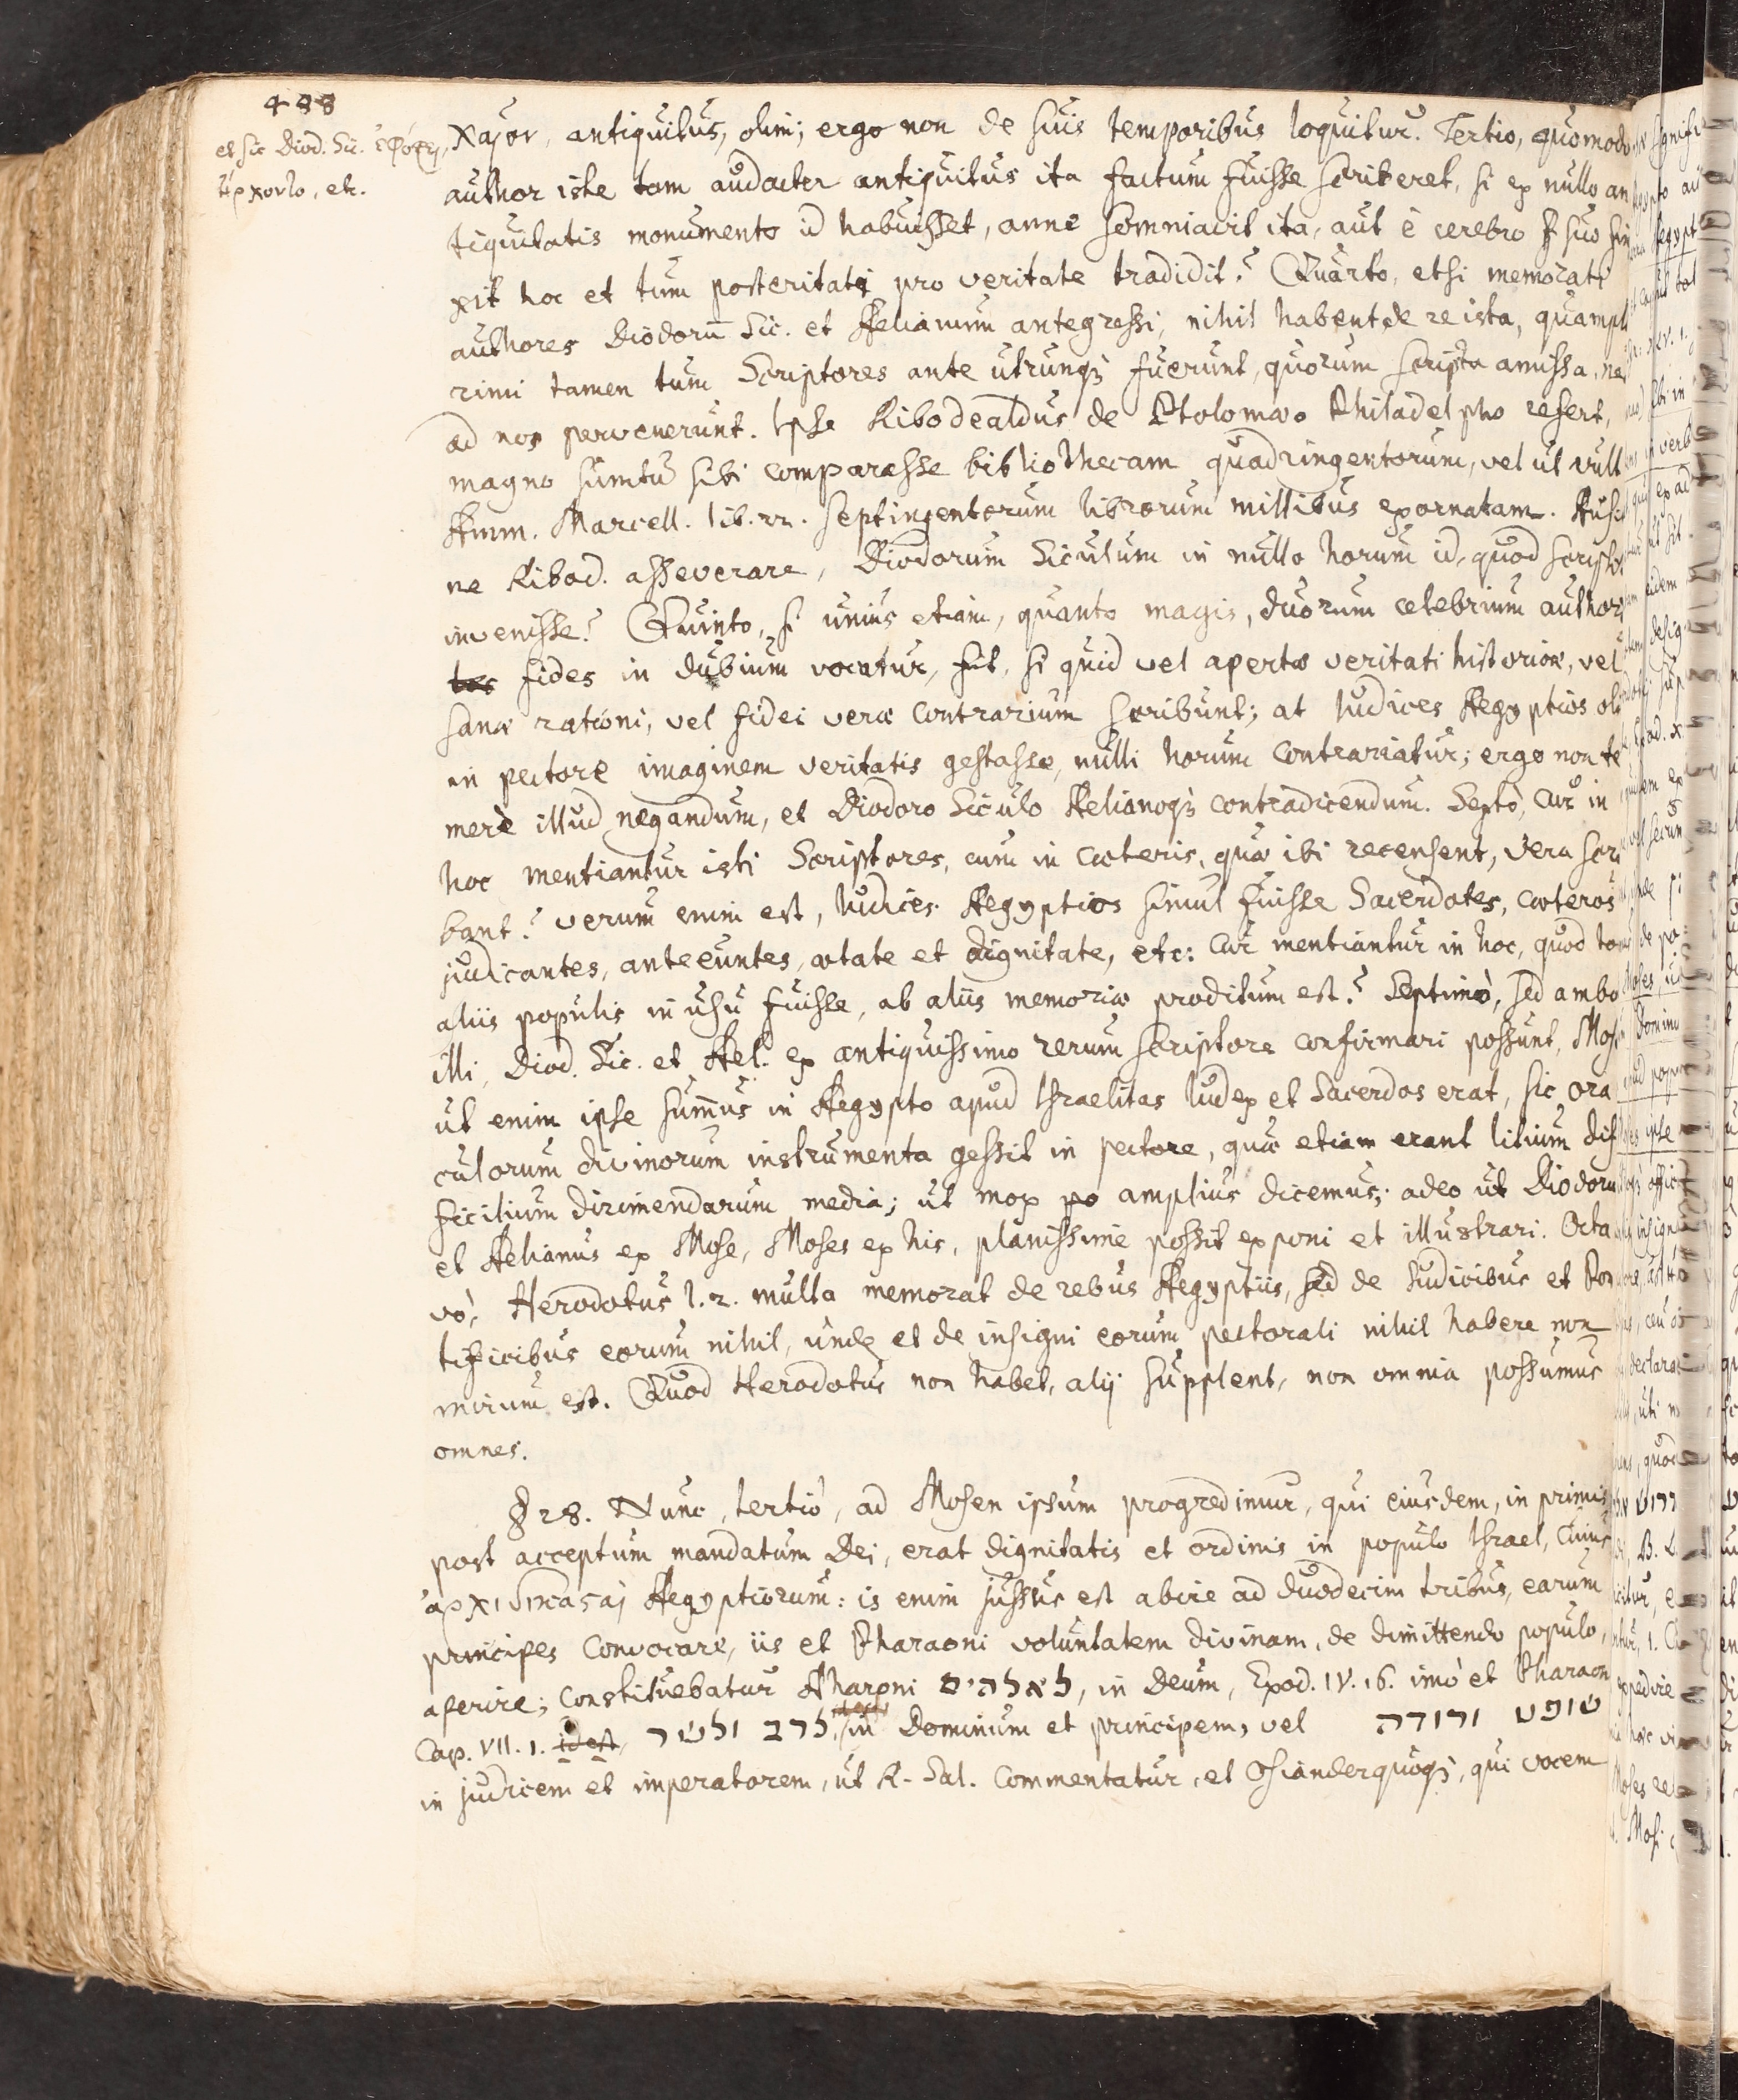 488
et sic Diod. Sic. ἐφόρει,
etc.
χαῖον, antiquitus, olim; ergo non de suis temporibus loquitur. Tertio, quomodo
author iste tam audacter antiquitus ita factum fuisse scriberet, si ex nullo an
tiquitatis monumento id habuisset, anne somniavit ita, aut è cerebro suo fin
xit hoc et tum posteritati pro veritate tradidit? Quarto, etsi memorati
authores Diodorū Sic. et Aelianum antegressi, nihil habent de re ista, quamplu
rimi tamen tum Scriptores ante utrunqȝ fuerunt, quorum scripta amissa, nec
ad nos pervenerunt. Ipse Ribodealdus de Ptolomæo Philadelpho refert,
magno sumtu sibi comparasse bibliothecam quadringentorum, vel ut vult
Amm. Marcell. lib. 22. septingentorum librorum millibus exornatam. Ausit
ne Ribod. asseverare, Diodorum Siculum in nullo horum id, quod scripsit
invenisse? Quinto, si unius etiam, quanto magis, duorum celebrium author
fides in dubium vocatur, fit, si quid vel apertæ veritati historiæ, vel
sanæ rationi, vel fidei veræ contrarium scribunt; at Iudices Aegyptios olim
in pectore imaginem veritatis gestasse, nulli horum contrariatur; ergo non te
merè illud negandum, et Diodoro Siculo Aelianoqȝ contradicendum. Sextò, Cur in
hoc mentiantur isti Scriptores, cum in cæteris, quæ ibi recensent, vera scri
bant? verum enim est, Iudices Aegyptios simul fuisse Sacerdotes, cæteros
judicantes, anteeuntes, ætate et dignitate, etc: Cur mentiantur in hoc, quod tamen
aliis populis in usu fuisse, ab aliis memoriæ proditum est? Septimò, sed ambo
illi, Diod. Sic. et Ael. ex antiquissimo rerum scriptore confirmari possunt, Mose
ut enim ipse summus in Aegypto apud Israelitas Iudex et Sacerdos erat, sic ora
culorum divinorum instrumenta gessit in pectore, quæ etiam erant litium dif
ficilium dirimendarum media; ut mox po amplius dicemus; adeo ut Diodorus
et Aelianus ex Mose, Moses ex his, planissimè possit exponi et illustrari. Octa
vò, Herodotus l. 2. multa memorat de rebus Aegyptiis, sed de Iudicibus et Pon
tificibus eorum nihil, unde et de insigni eorum pectorali nihil habere non
mirum est. Quod Herodotus non habet, alij supplent, non omnia possumus
omnes.
§ 28. Nunc, tertiò, ad Mosen ipsum progredimur, qui eiusdem, in primis
post acceptum mandatum Dei, erat dignitatis et ordinis in populo Israel, Cuius
ἀρχιδικασαὶ Aegyptiorum: is enim jussus est abire ad duodecim tribus, earum
principes Convocare, iis et Pharaoni voluntatem divinam, de dimittendo populo,
aperire; Constituebatur Aharoni לאלהים, in Deum, Exod. IV. 16. imò et Pharaoni
Cap. VII. 1. idest, לרב ולשר, in Dominum et principem, vel שופט ורודה
in judicem et imperatorem, ut R. Sal. Commentatur, et Osianderquoqȝ, qui vocem